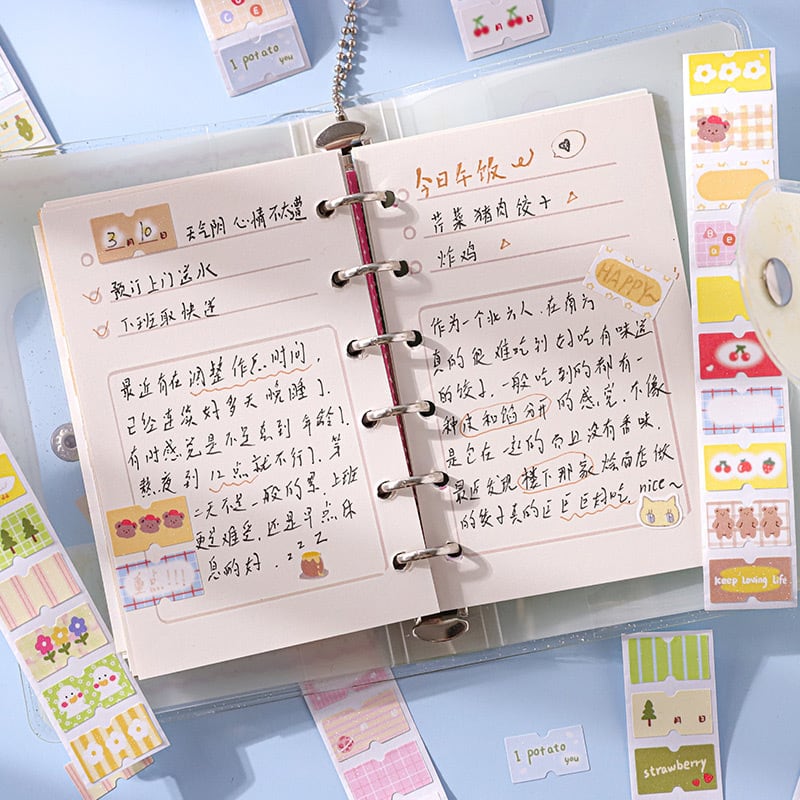 1 potato
you
月 日
3月10日 天气阴 心情不太遭
预订上门送水
下班取快递
最近有在调整作息时间,
已经连续好多天晚睡了.
有时感觉是不是到年龄了.
熬夜到12点就不行了. 第
二天不是一般的累. 上班
更是难受. 还是早点休
息的好. zzz
重点!!!
今日午饭
芹菜猪肉饺子
炸鸡
HAPPY~
作为一个北方人. 在南方
真的很难吃到好吃有味道
的饺子. 一般吃到的都有一
种皮和馅分开的感觉. 不像
是包在一起的而且没有香味.
最近发现楼下那家烩面店做
的饺子真的巨巨巨好吃. nice~
keep loving life
1 potato
you
月 日
strawberry